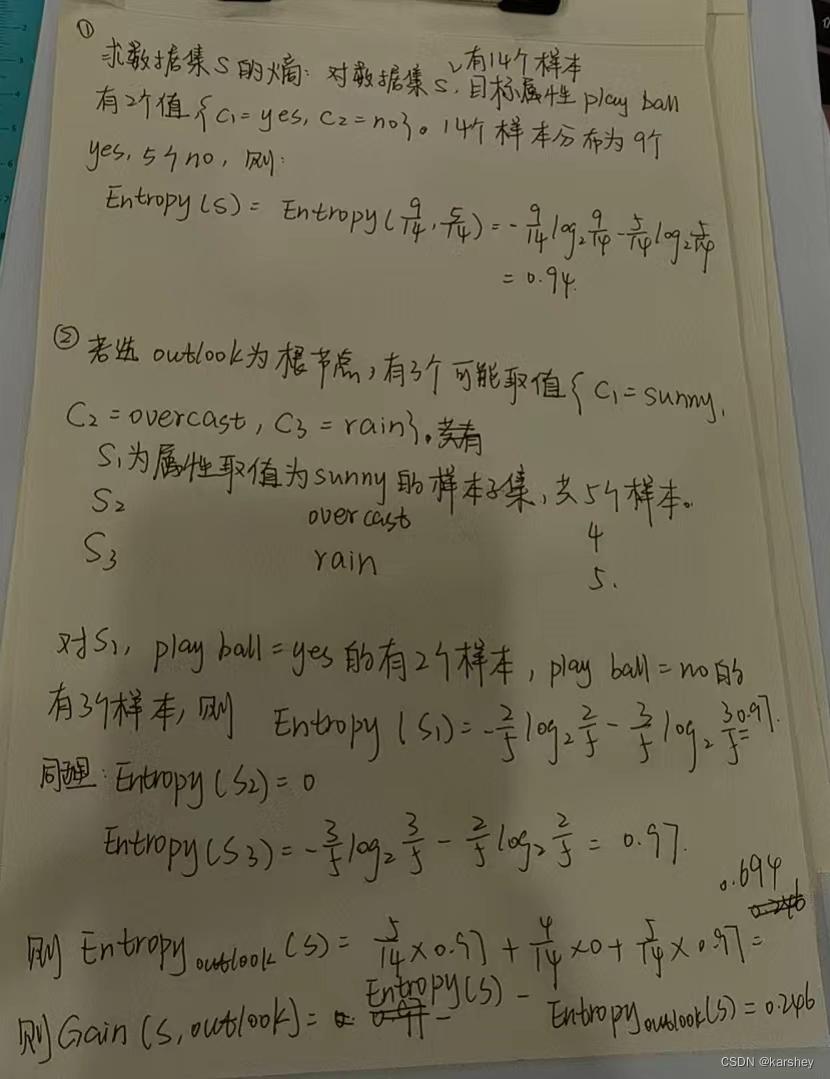 ①
求数据集S的熵: 对数据集S,有14个样本,目标属性play ball
有2个值{C₁=yes, C₂=no}。14个样本分布为9个
yes, 5个no, 则:
Entropy(S) = Entropy(9/14, 5/14) = -9/14 log₂ 9/14 - 5/14 log₂ 5/14
= 0.94.
② 若选outlook为根节点,有3个可能取值{C₁=sunny,
C₂=overcast, C₃=rain}。
S₁为属性取值为sunny的样本子集,共5个样本。
S₂ overcast 4
S₃ rain 5.
对S₁, play ball=yes的有2个样本, play ball=no的
有3个样本,则 Entropy(S₁) = -2/5 log₂ 2/5 - 3/5 log₂ 3/5 = 0.97.
同理: Entropy(S₂) = 0
Entropy(S₃) = -3/5 log₂ 3/5 - 2/5 log₂ 2/5 = 0.97.
则 Entropy outlook (S) = 5/14 × 0.97 + 4/14 × 0 + 5/14 × 0.97 = 0.694
则 Gain(S, outlook) = Entropy(S) - Entropy outlook (S) = 0.246
CSDN @karshey